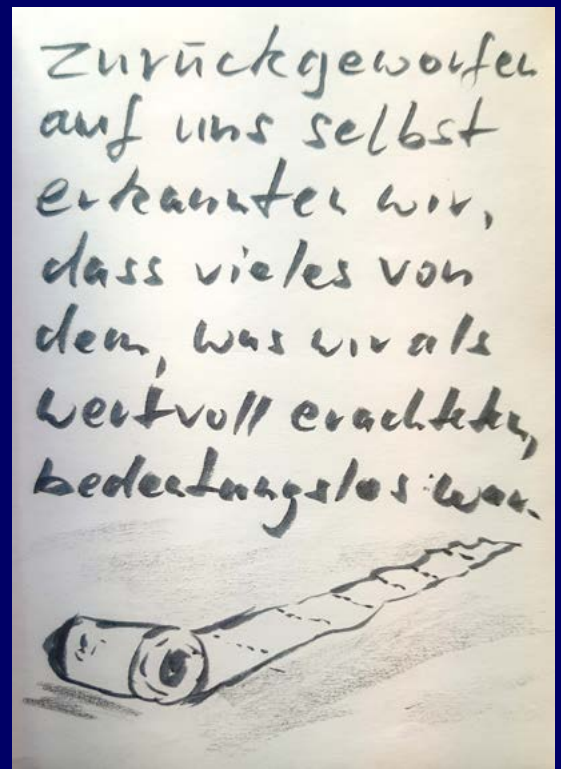 zurückgeworfen
auf uns selbst
erkannten wir,
dass vieles von
dem, was wir als
wertvoll erachteten,
bedeutungslos war.